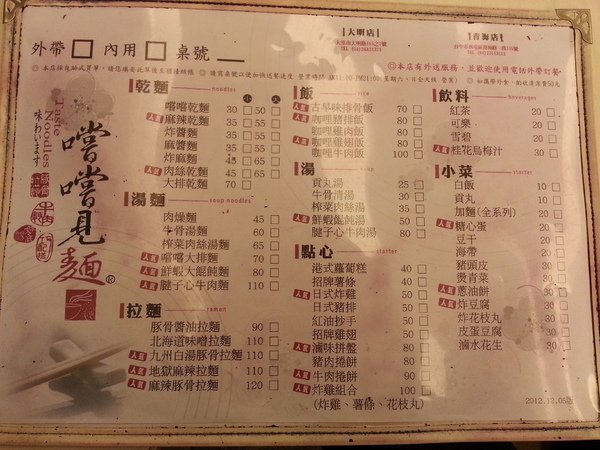 外帶 □ 內用 □ 桌號
【大明店】
【青海店】
乾麵 noodles 小 大
嚐嚐乾麵 30 □ 50 □
人氣 麻辣乾麵 35 □ 55 □
炸醬麵 35 □ 55 □
麻醬麵 35 □ 55 □
炸麻麵 45 □ 65 □
人氣 肉絲乾麵 45 □ 65 □
大排乾麵 70 □
湯麵 soup noodles
肉燥麵 45 □
牛骨湯麵 60 □
榨菜肉絲湯麵 65 □
人氣 嚐嚐大排麵 70 □
人氣 鮮蝦大餛飩麵 80 □
人氣 腱子心牛肉麵 110 □
拉麵 ramen
豚骨醬油拉麵 90 □
北海道味噌拉麵 110 □
人氣 九州白湯豚骨拉麵 110 □
人氣 地獄麻辣拉麵 110 □
人氣 麻辣豚骨拉麵 120 □
飯 rice
人氣 古早味排骨飯 70 □
人氣 咖哩豬排飯 80 □
咖哩雞肉飯 80 □
人氣 咖哩雞翅飯 80 □
咖哩牛肉飯 100 □
湯 soup
貢丸湯 25 □
牛骨清湯 30 □
榨菜肉絲湯 35 □
人氣 鮮蝦餛飩湯 50 □
腱子心牛肉湯 80 □
點心 starter
港式蘿蔔糕 40 □
招牌薯條 40 □
人氣 日式炸雞 50 □
日式豬排 50 □
紅油抄手 50 □
招牌雞翅 50 □
人氣 滷味拼盤 80 □
豬肉捲餅 80 □
人氣 牛肉捲餅 90 □
人氣 炸雞組合 100 □
(炸雞、薯條、花枝丸)
飲料 beverages
紅茶 20 □
可樂 20 □
雪碧 20 □
人氣 桂花烏梅汁 30 □
小菜 starter
白飯 10 □
貢丸 10 □
加麵(全系列) 20 □
人氣 糖心蛋 20 □
豆干 20 □
海帶 20 □
豬頭皮 30 □
燙青菜 30 □
人氣 蔥油餅 30 □
人氣 炸豆腐 30 □
炸花枝丸 30 □
皮蛋豆腐 30 □
滷水花生 30 □
Taste Noodles
味わいます
嚐嚐見麵 ®
2012.12.05